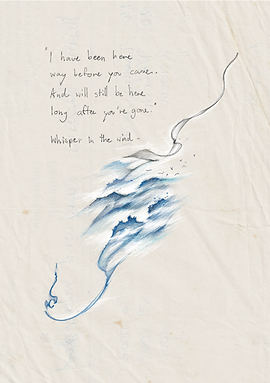 "I have been here
way before you came.
And will still be here
long after you're gone."
Whisper in the wind -